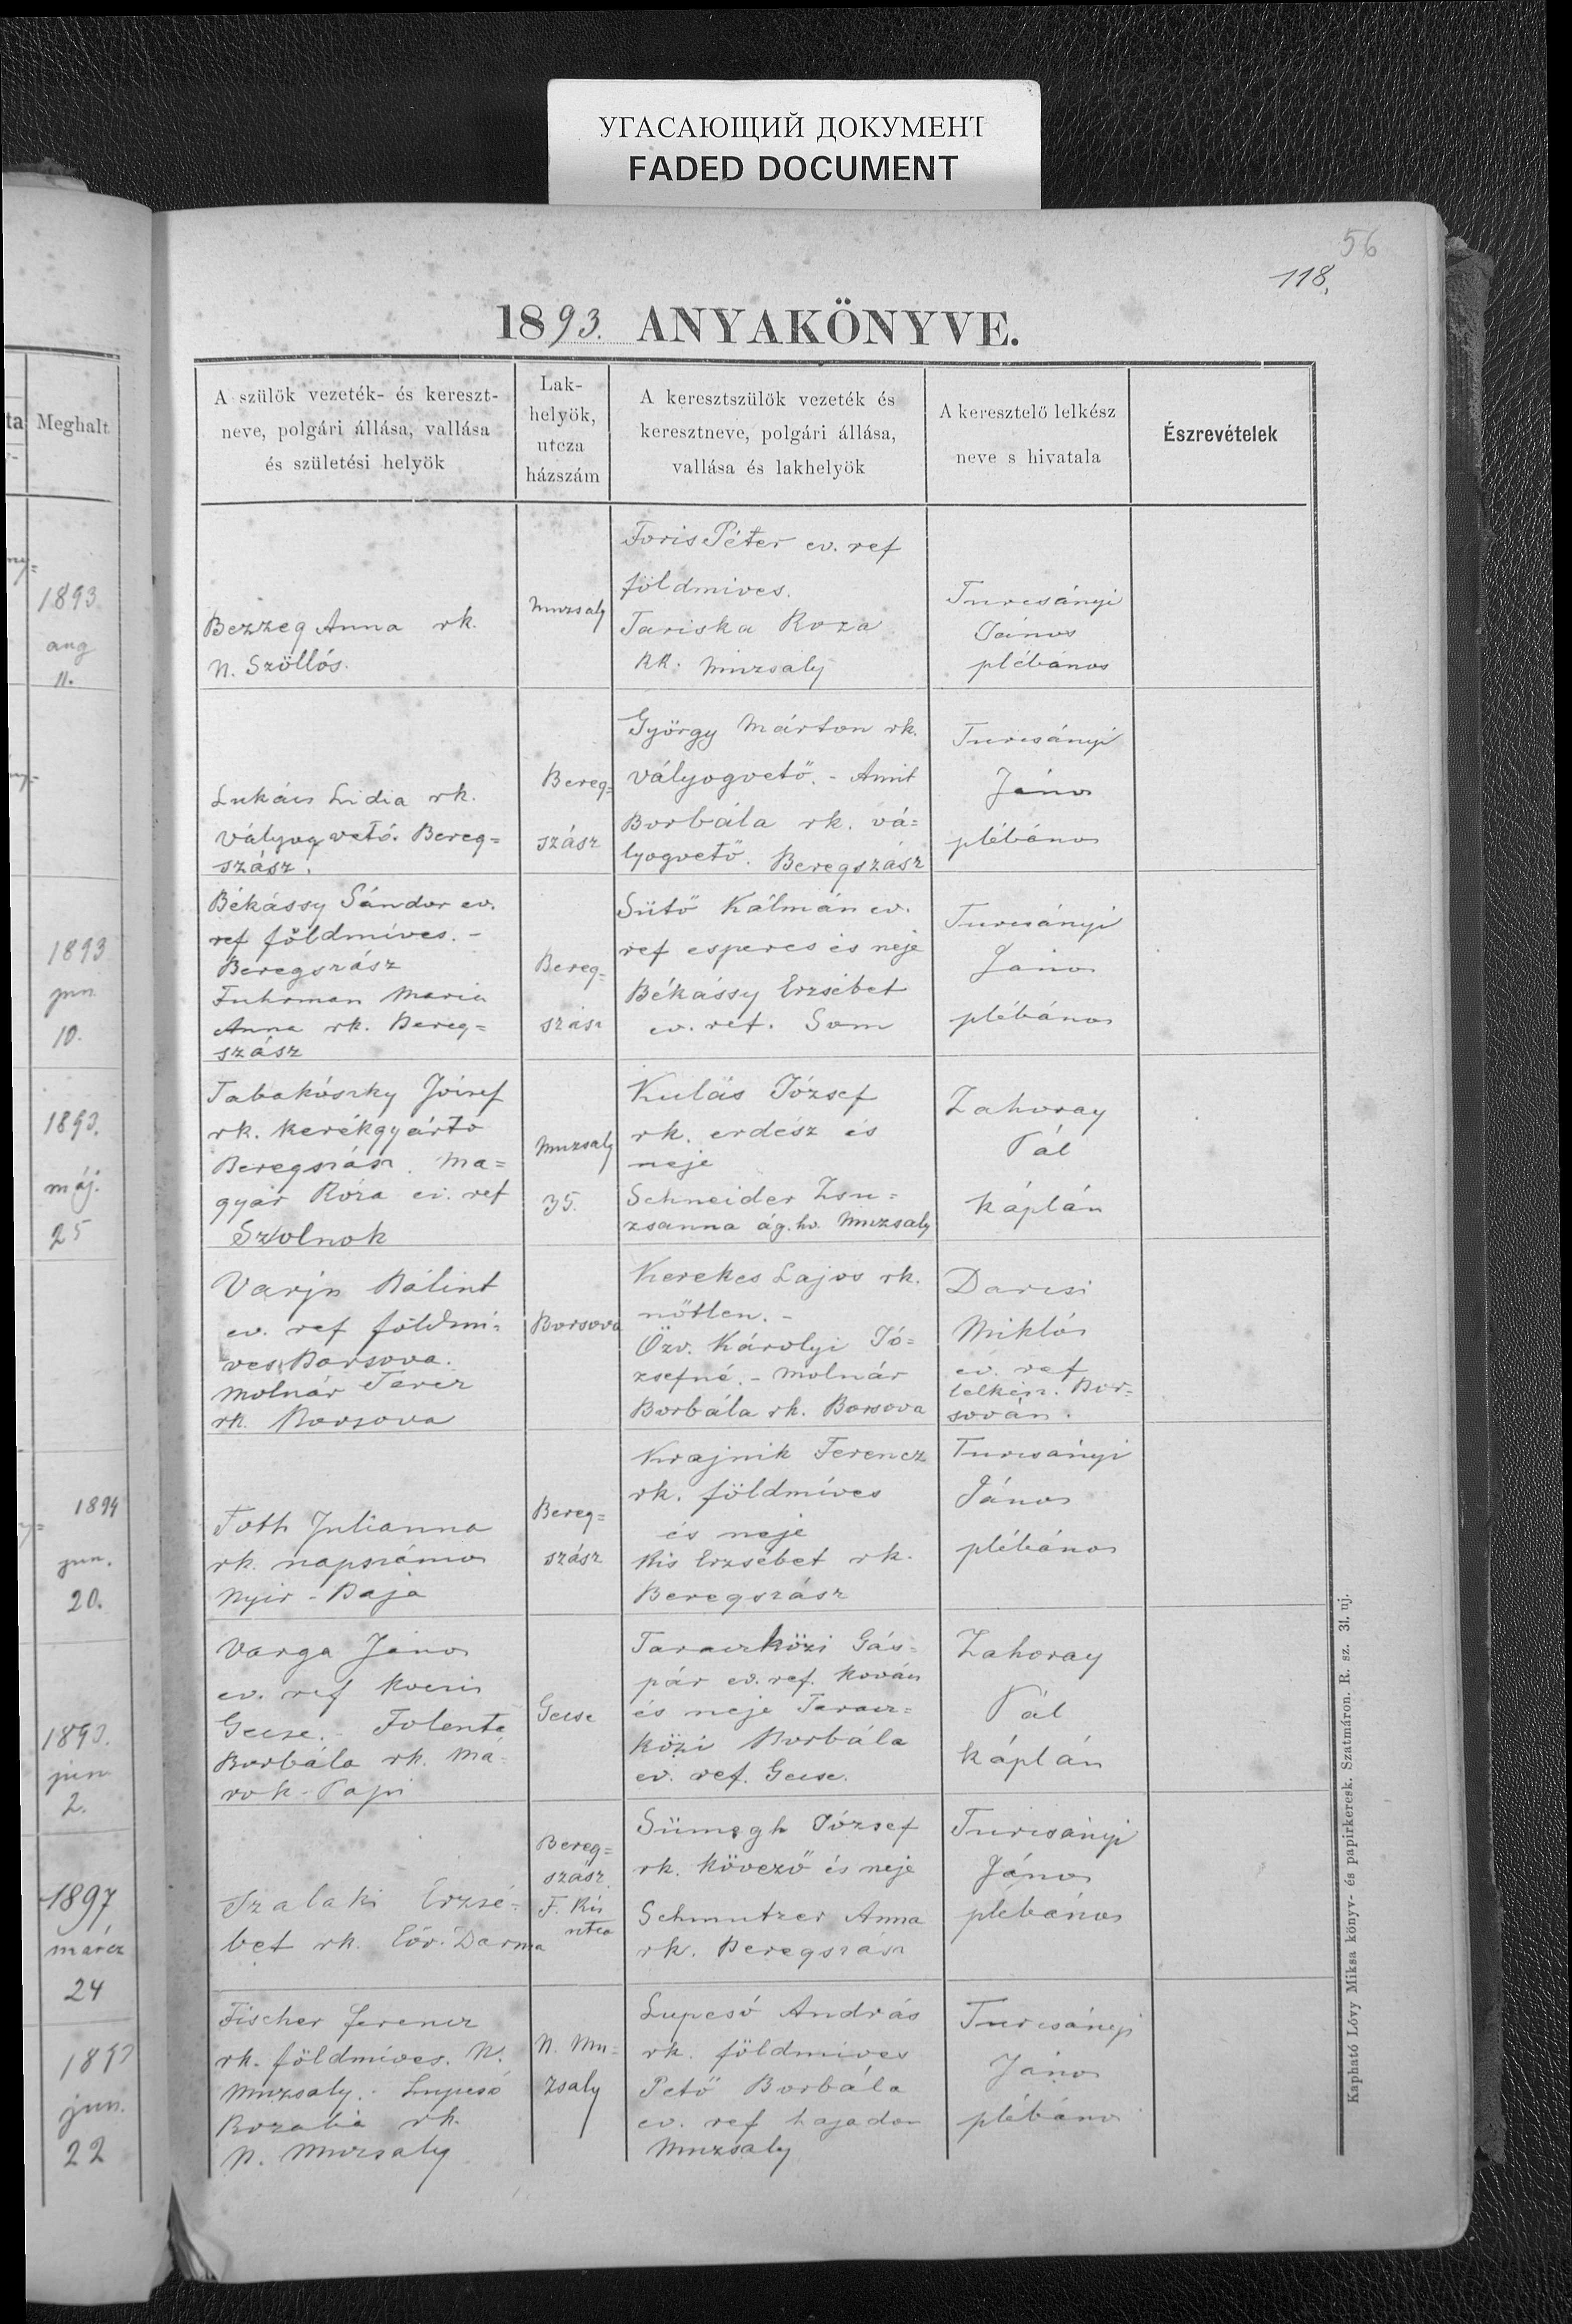 УГАСАЮЩИЙ ДОКУМЕНТ
FADED DOCUMENT
56
118.
1893. ANYAKÖNYVE.
Meghalt
1893
aug
11.
1893
jun
10.
1893.
máj.
25
1894
jun.
20.
1893.
jun
2.
1897
márcz
24
1893
jun.
22
A szülök vezeték- és kereszt-
neve, polgári állása, vallása
és születési helyök
Lak-
helyök,
utcza
házszám
A keresztszülök vezeték és
keresztneve, polgári állása,
vallása és lakhelyök
A keresztelő lelkész
neve s hivatala
Észrevételek
Bezzeg Anna rk.
N. Szöllós.
Muzsaly
Foris Péter ev. ref
földmives.
Tariska Roza
RK. Muzsaly
Turcsányi
János
plébános
Lukács Lidia rk.
vályogvető. Bereg=
szász.
Bereg=
szász
György Márton rk.
vályogvető. - Amit
Borbála rk. vá=
lyogvető. Beregszász
Turcsányi
János
plébános
Békássy Sándor ev.
ref földmíves. -
Beregszász
Fuhrman Maria
Anna rk. Bereg=
szász
Bereg=
szász
Sütő Kálmán ev.
ref esperes és neje
Békássy Erzsébet
ev. ref. Som
Turcsányi
János
plébános
Tabakószky József
rk. kerékgyártó
Beregszász. Ma=
gyar Róza ev. ref
Szolnok
Muzsaly
35.
Kulás József
rk. erdész és
neje
Schneider Zsu=
zsanna ág. hv. Muzsaly
Zahoray
Pál
káplán
Varju Bálint
ev. ref földmi=
ves Borsova.
Molnár Terez
rk. Borsova
Borsova
Kerekes Lajos rk.
nőtlen. -
Özv. Károlyi Jó=
zsefné. - Molnár
Borbála rk. Borsova
Darcsi
Miklós
ev. ref
lelkész. Bor=
sován.
Toth Julianna
rk. napszámos
Nyir-Baja
Bereg=
szász
Krajnik Ferencz
rk. földmíves
és neje
Kis Erzsébet rk.
Beregszász
Turcsányi
János
plébános
Varga János
ev. ref kocsis
Gecse. - Tolenta
Borbála rk. Má=
rok-Papi
Gecse
Taraczközi Gás=
pár ev. ref. kovács
és neje Taracz=
közi Borbála
ev. ref. Gecse.
Zahoray
Pál
káplán
Szalaki Erzsé=
bet rk. Eör-Darma
Bereg=
szász.
F. Kis
utca
Sümegh József
rk. kövező és neje
Schmutzer Anna
rk. Beregszász
Turcsányi
János
plébános
Fischer Ferencz
rk. földmíves. N.
Muzsaly. - Lupcsó
Rozalia rk.
N. Muzsaly
N. Mu=
zsaly
Lupcsó András
rk. földmives
Pető Borbála
ev. ref hajadon
Muzsaly
Turcsányi
János
plébános
Kapható Lövy Miksa könyv- és papirkeresk. Szatmáron. R. sz. 31. uj.